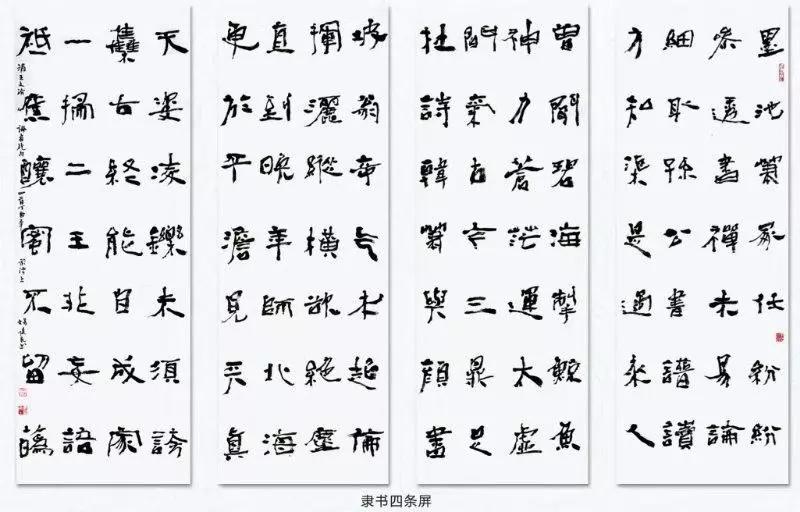 墨池筆冢任紛紛
參透書禪未易論
細取孫公書譜讀
方知渠是過來人
曾聞碧海掣鯨魚
神力蒼茫運太虛
間氣古今三鼎足
杜詩韓筆與顏書
坡翁奇氣本超倫
揮灑縱橫欲絕塵
直到晚年師北海
更於平澹見天真
天姿凌轢未須誇
集古終能自成家
一掃二王非妄語
祗應釀蜜不留蘤
清王文治論書絕句
隶书四条屏